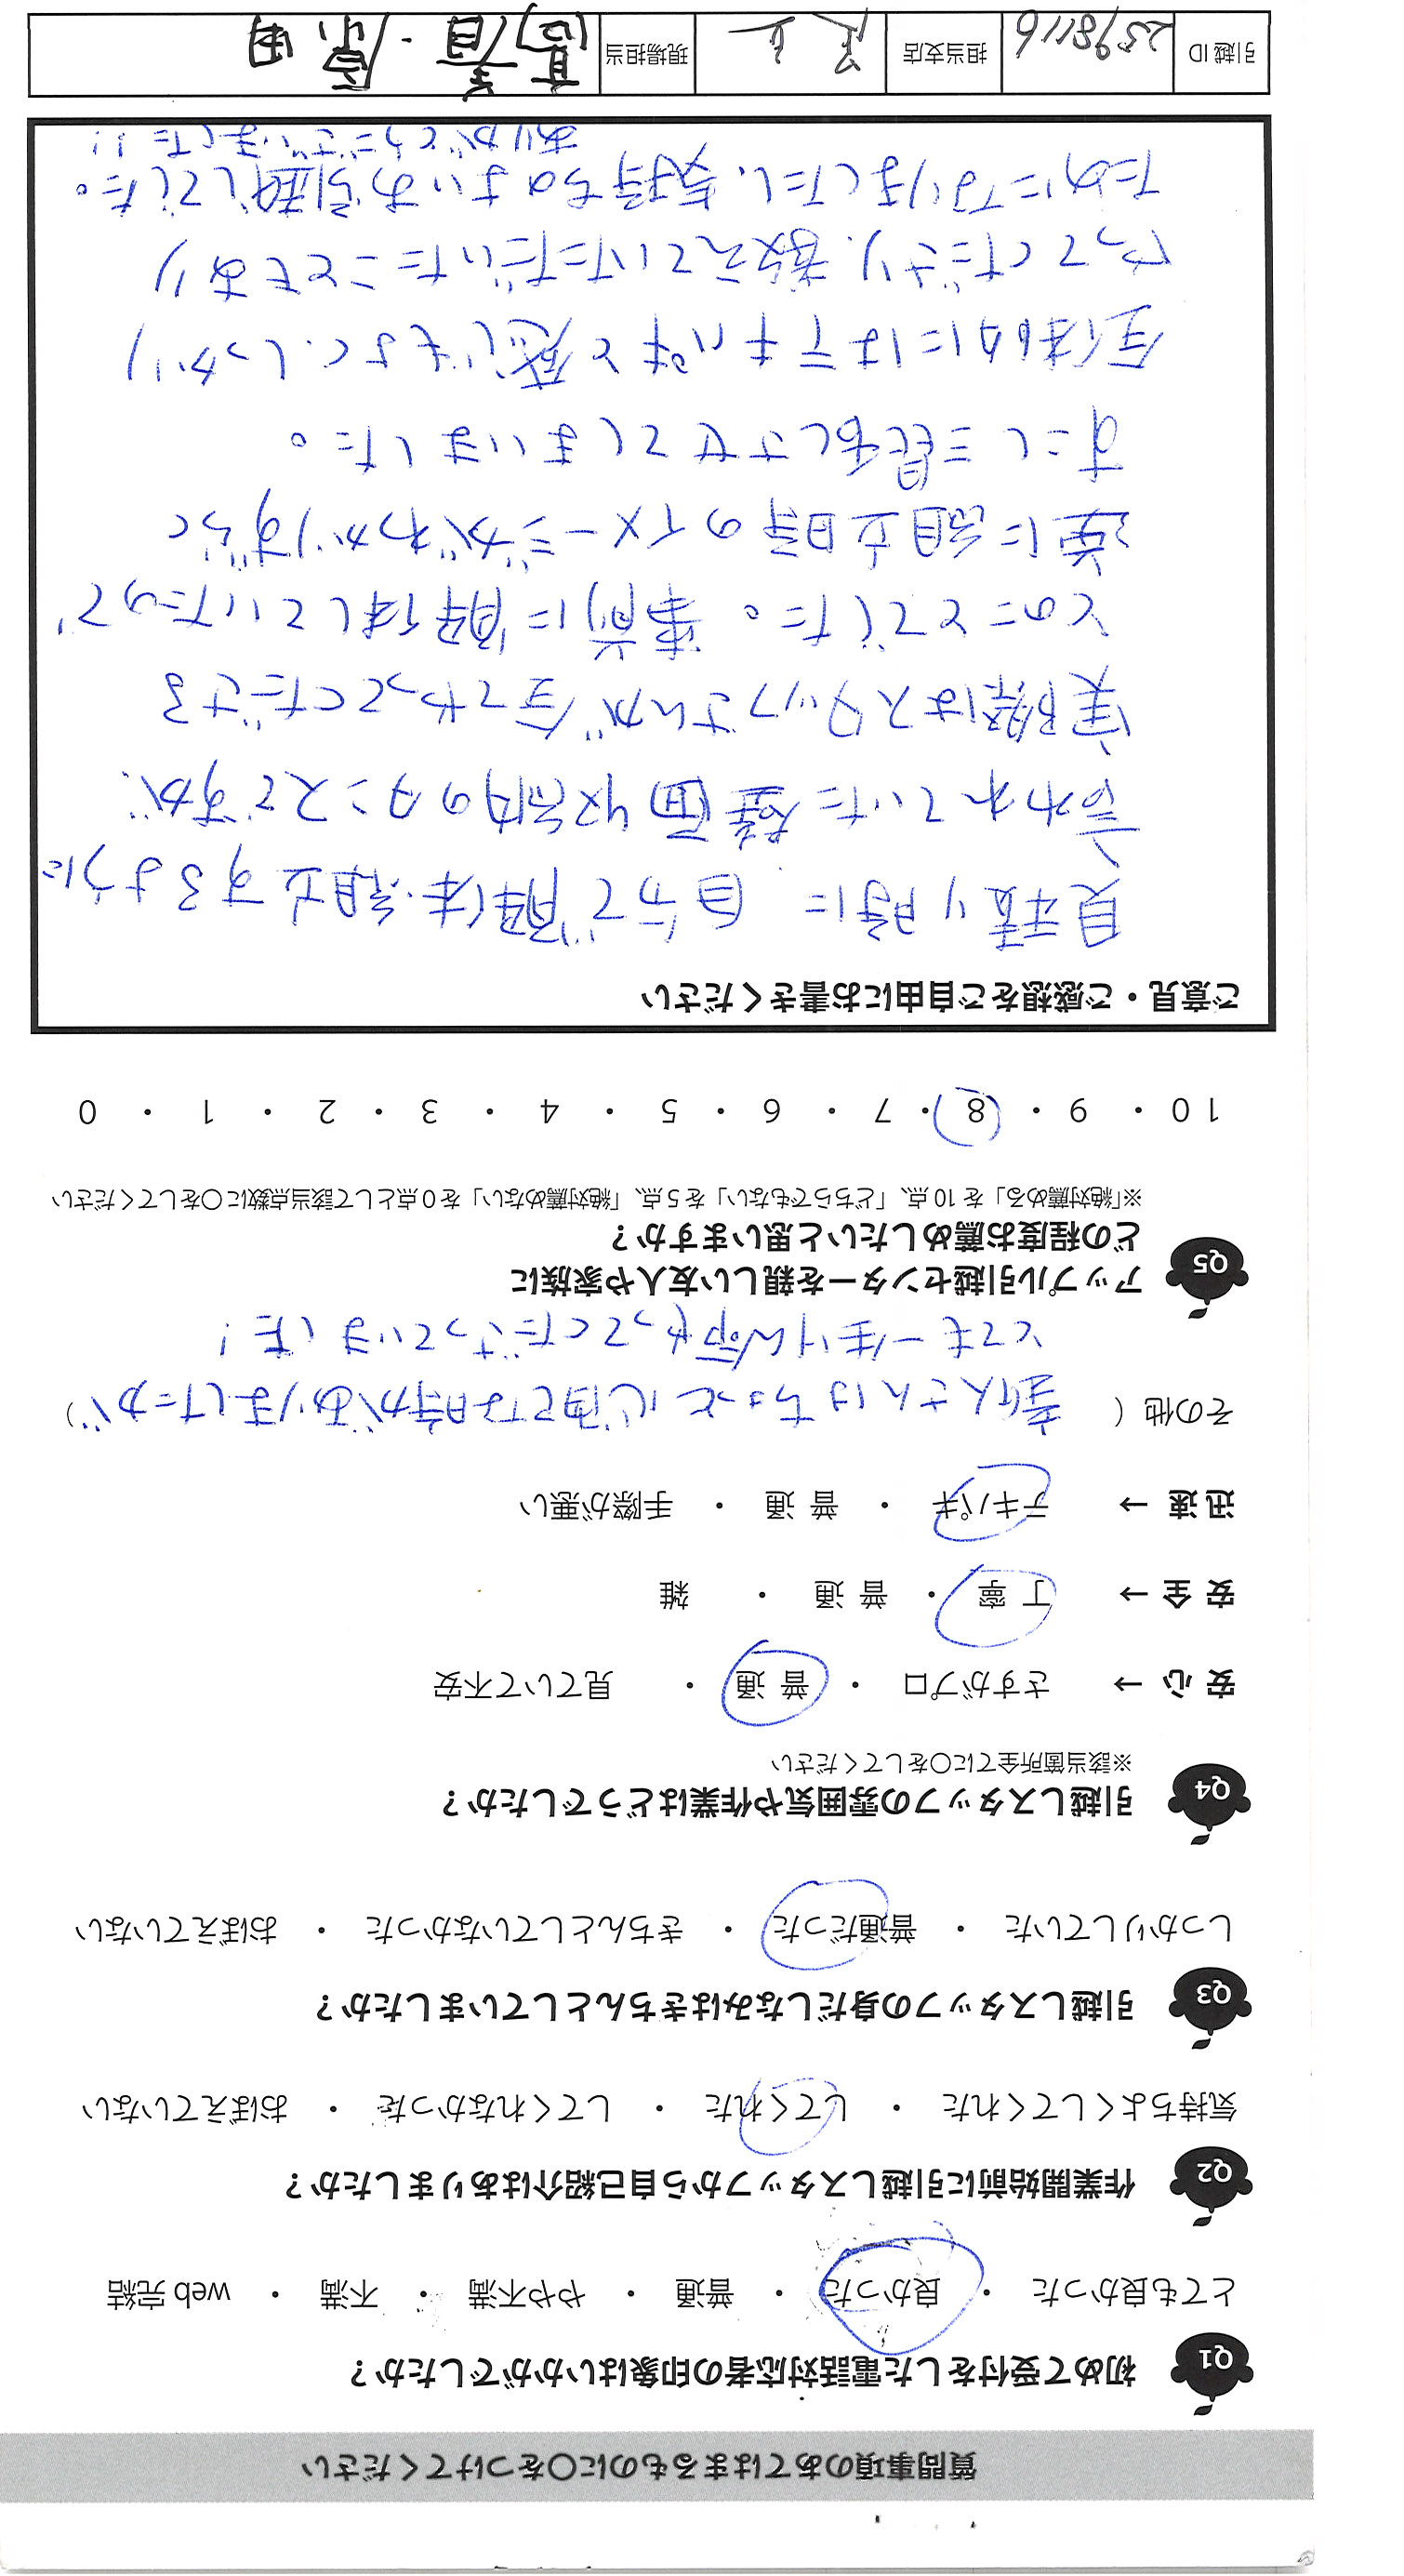 質問事項のあてはまるものに○をつけてください
Q1 初めて受付をした電話対応者の印象はいかがでしたか？
とても良かった ・ 良かった ・ 普通 ・ やや不満 ・ 不満 ・ web 完結
Q2 作業開始前に引越しスタッフから自己紹介はありましたか？
気持ちよくしてくれた ・ してくれた ・ してくれなかった ・ おぼえていない
Q3 引越しスタッフの身だしなみはきちんとしていましたか？
しっかりしていた ・ 普通だった ・ きちんとしていなかった ・ おぼえていない
Q4 引越しスタッフの雰囲気や作業はどうでしたか？
※該当箇所全てに○をしてください
安 心 → さすがプロ ・ 普 通 ・ 見ていて不安
安 全 → 丁 寧 ・ 普 通 ・ 雑
迅 速 → テキパキ ・ 普 通 ・ 手際が悪い
その他 ( 新人さんはちょっと心配な時がありましたが )
とても一生けん命やってくださっていました！
Q5 アップル引越センターを親しい友人や家族に
どの程度お薦めしたいと思いますか？
※「絶対薦める」を 10 点、「どちらでもない」を 5 点、「絶対薦めない」を 0 点として該当点数に○をしてください
10 ・ 9 ・ 8 ・ 7 ・ 6 ・ 5 ・ 4 ・ 3 ・ 2 ・ 1 ・ 0
ご意見・ご感想をご自由にお書きください
見積り時に 自分で解体・組立するように
言われていた壁面収納のタンスですが、
実際はスタッフさんが全てやってくださる
とのことでした。事前に解体していたので、
逆に組立時のイメージがわかりずらく
すこし苦労させてしまいました。
全体的にはテキパキと感じもよく、しっかり
やってくださり、教えていただいたこともあり
ためになりましたし、気持ちのよいお引越しでした。
ありがとうございました!!
引越 ID 2598116 担当支店 現場担当